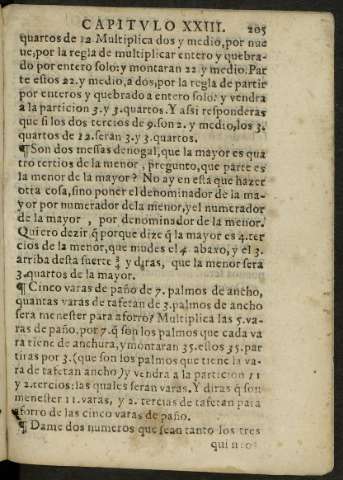 CAPITVLO XXIII. 205
quartos de 12. Multiplica dos y medio, por nue
ue, por la regla de multiplicar entero y quebra-
do por entero solo: y montaran 22. y medio. Par
te estos 22. y medio, a dos, por la regla de partir
por enteros y quebrado a entero solo: y vendra
a la particion 3. y 3. quartos. Y assi responderas
que si los dos tercios de 9. son 2. y medio, los 3.
quartos de 12. seran 3. y 3. quartos.
¶ Son dos messas denogal, que la mayor es qua
tro tercios de la menor, pregunto, que parte es
la menor de la mayor? No ay en esta que hazer
otra cosa, sino poner el denominador de la ma-
yor por numerador dela menor, y el numerador
de la mayor, por denominador de la menor.
Quiero dezir q̃ porque dize q̃ la mayor es 4. ter
cios de la menor, que mudes el 4. abaxo, y el 3.
arriba desta suerte ¾ y diras, que la menor sera
3. quartos de la mayor.
¶ Cinco varas de paño de 7. palmos de ancho,
quantas varas de tafetan de 3. palmos de ancho
sera menester para aforro? Multiplica las 5. va-
ras de paño, por 7. q̃ son los palmos que cada va
ra tiene de anchura, y montaran 35. estos 35. par
tiras por 3. (que son los palmos que tiene la va-
ra de tafetan ancho) y vendra a la particion 11
y 2. tercios: las quales seran varas. Y diras q̃ son
menester 11. varas, y 2. tercias de tafetan para
aforro de las cinco varas de paño.
¶ Dame dos numeros que sean tanto los tres
quintos